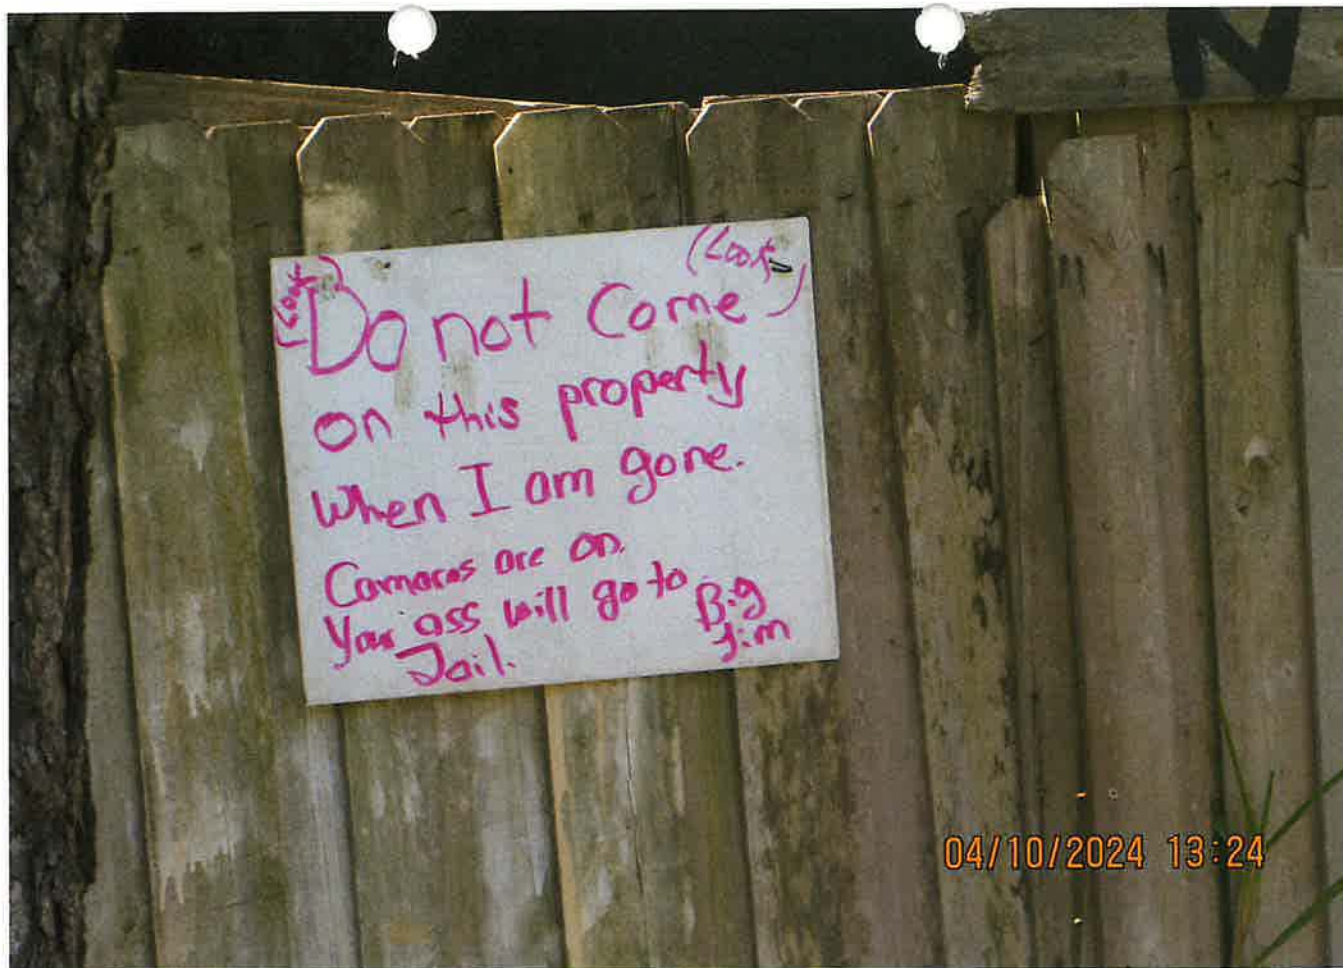 N
(Look) (Look)
Do not Come
on this property
when I am gone.
Camaras are on.
Your ass will go to Big
Jail. Jim
04/10/2024 13:24